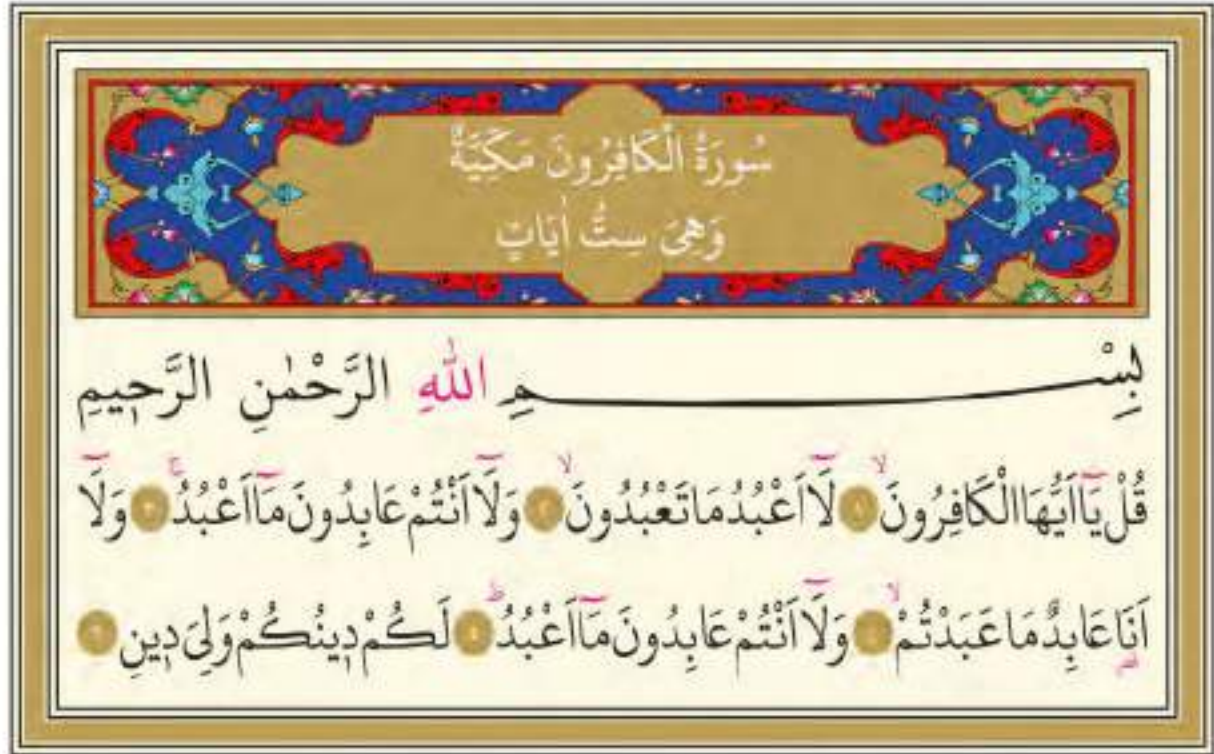 سُورَةُ الْكَافِرُونَ مَكِّيَّةٌ
وَهِيَ سِتُّ اٰيَاتٍ
بِسْمِ اللّٰهِ الرَّحْمٰنِ الرَّحٖيمِ
قُلْ يَٓا اَيُّهَا الْكَافِرُونَۙ ﴿١﴾ لَٓا اَعْبُدُ مَا تَعْبُدُونَۙ ﴿٢﴾ وَلَٓا اَنْتُمْ عَابِدُونَ مَٓا اَعْبُدُۚ ﴿٣﴾ وَلَٓا
اَنَا۬ عَابِدٌ مَا عَبَدْتُمْۙ ﴿٤﴾ وَلَٓا اَنْتُمْ عَابِدُونَ مَٓا اَعْبُدُۜ ﴿٥﴾ لَكُمْ دٖينُكُمْ وَلِيَ دٖينِ ﴿٦﴾